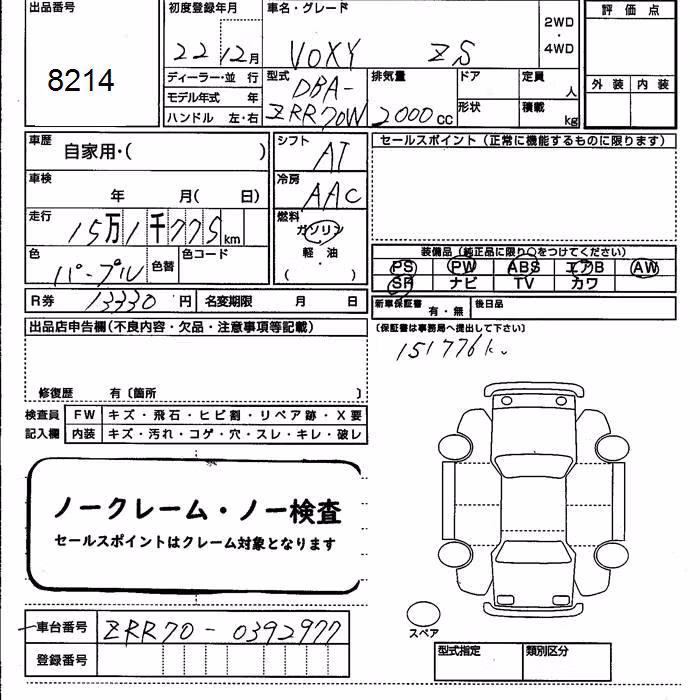 出品番号 初度登録年月 車名・グレード 2WD ・ 4WD 評価点
8214 22 12月 VOXY ZS
ディーラー・並 行 型式 排気量 ドア 定員 人 外装 内装
モデル年式 年 DBA-
ハンドル 左・右 ZRR70W 2000cc 形状 積載 kg
車歴 自家用・( ) シフト AT セールスポイント (正常に機能するものに限ります)
車検 年 月( 日) 冷房 AAC
走行 15万1千775km 燃料 ガソリン
色 パープル 色替 色コード 軽油 ・ ( )
装備品 (純正品に限り○をつけてください)
PS PW ABS エアB AW
SR ナビ TV カワ
R券 13330円 名変期限 月 日 新車保証書 有・無 後日品
出品店申告欄(不良内容・欠品・注意事項等記載) 〔保証書は事務局へ提出して下さい〕
151776k
修復歴 有〔箇所 〕
検査員 FW キズ・飛石・ヒビ割・リペア跡・X要
記入欄 内装 キズ・汚れ・コゲ・穴・スレ・キレ・破レ
ノークレーム・ノー検査
セールスポイントはクレーム対象となります
車台番号 ZRR70-0392977
スペア
登録番号 型式指定 類別区分